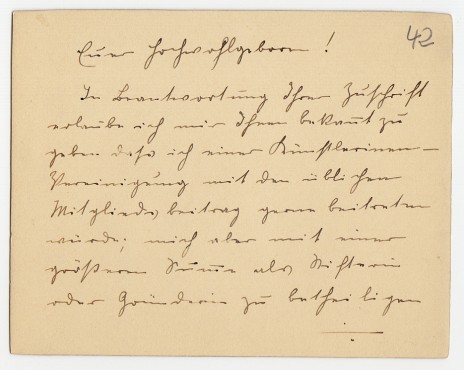 42
Euer Hochwohlgeboren!
In Beantwortung Ihrer Zuschrift
erlaube ich mir Ihnen bekannt zu
geben dass ich einer Künstlerinen-
Vereinigung mit den üblichen
Mitgliedsbeitrag gerne beitreten
würde; mich aber mit einer
größeren Summe als Stifterin
oder Gründerin zu betheiligen